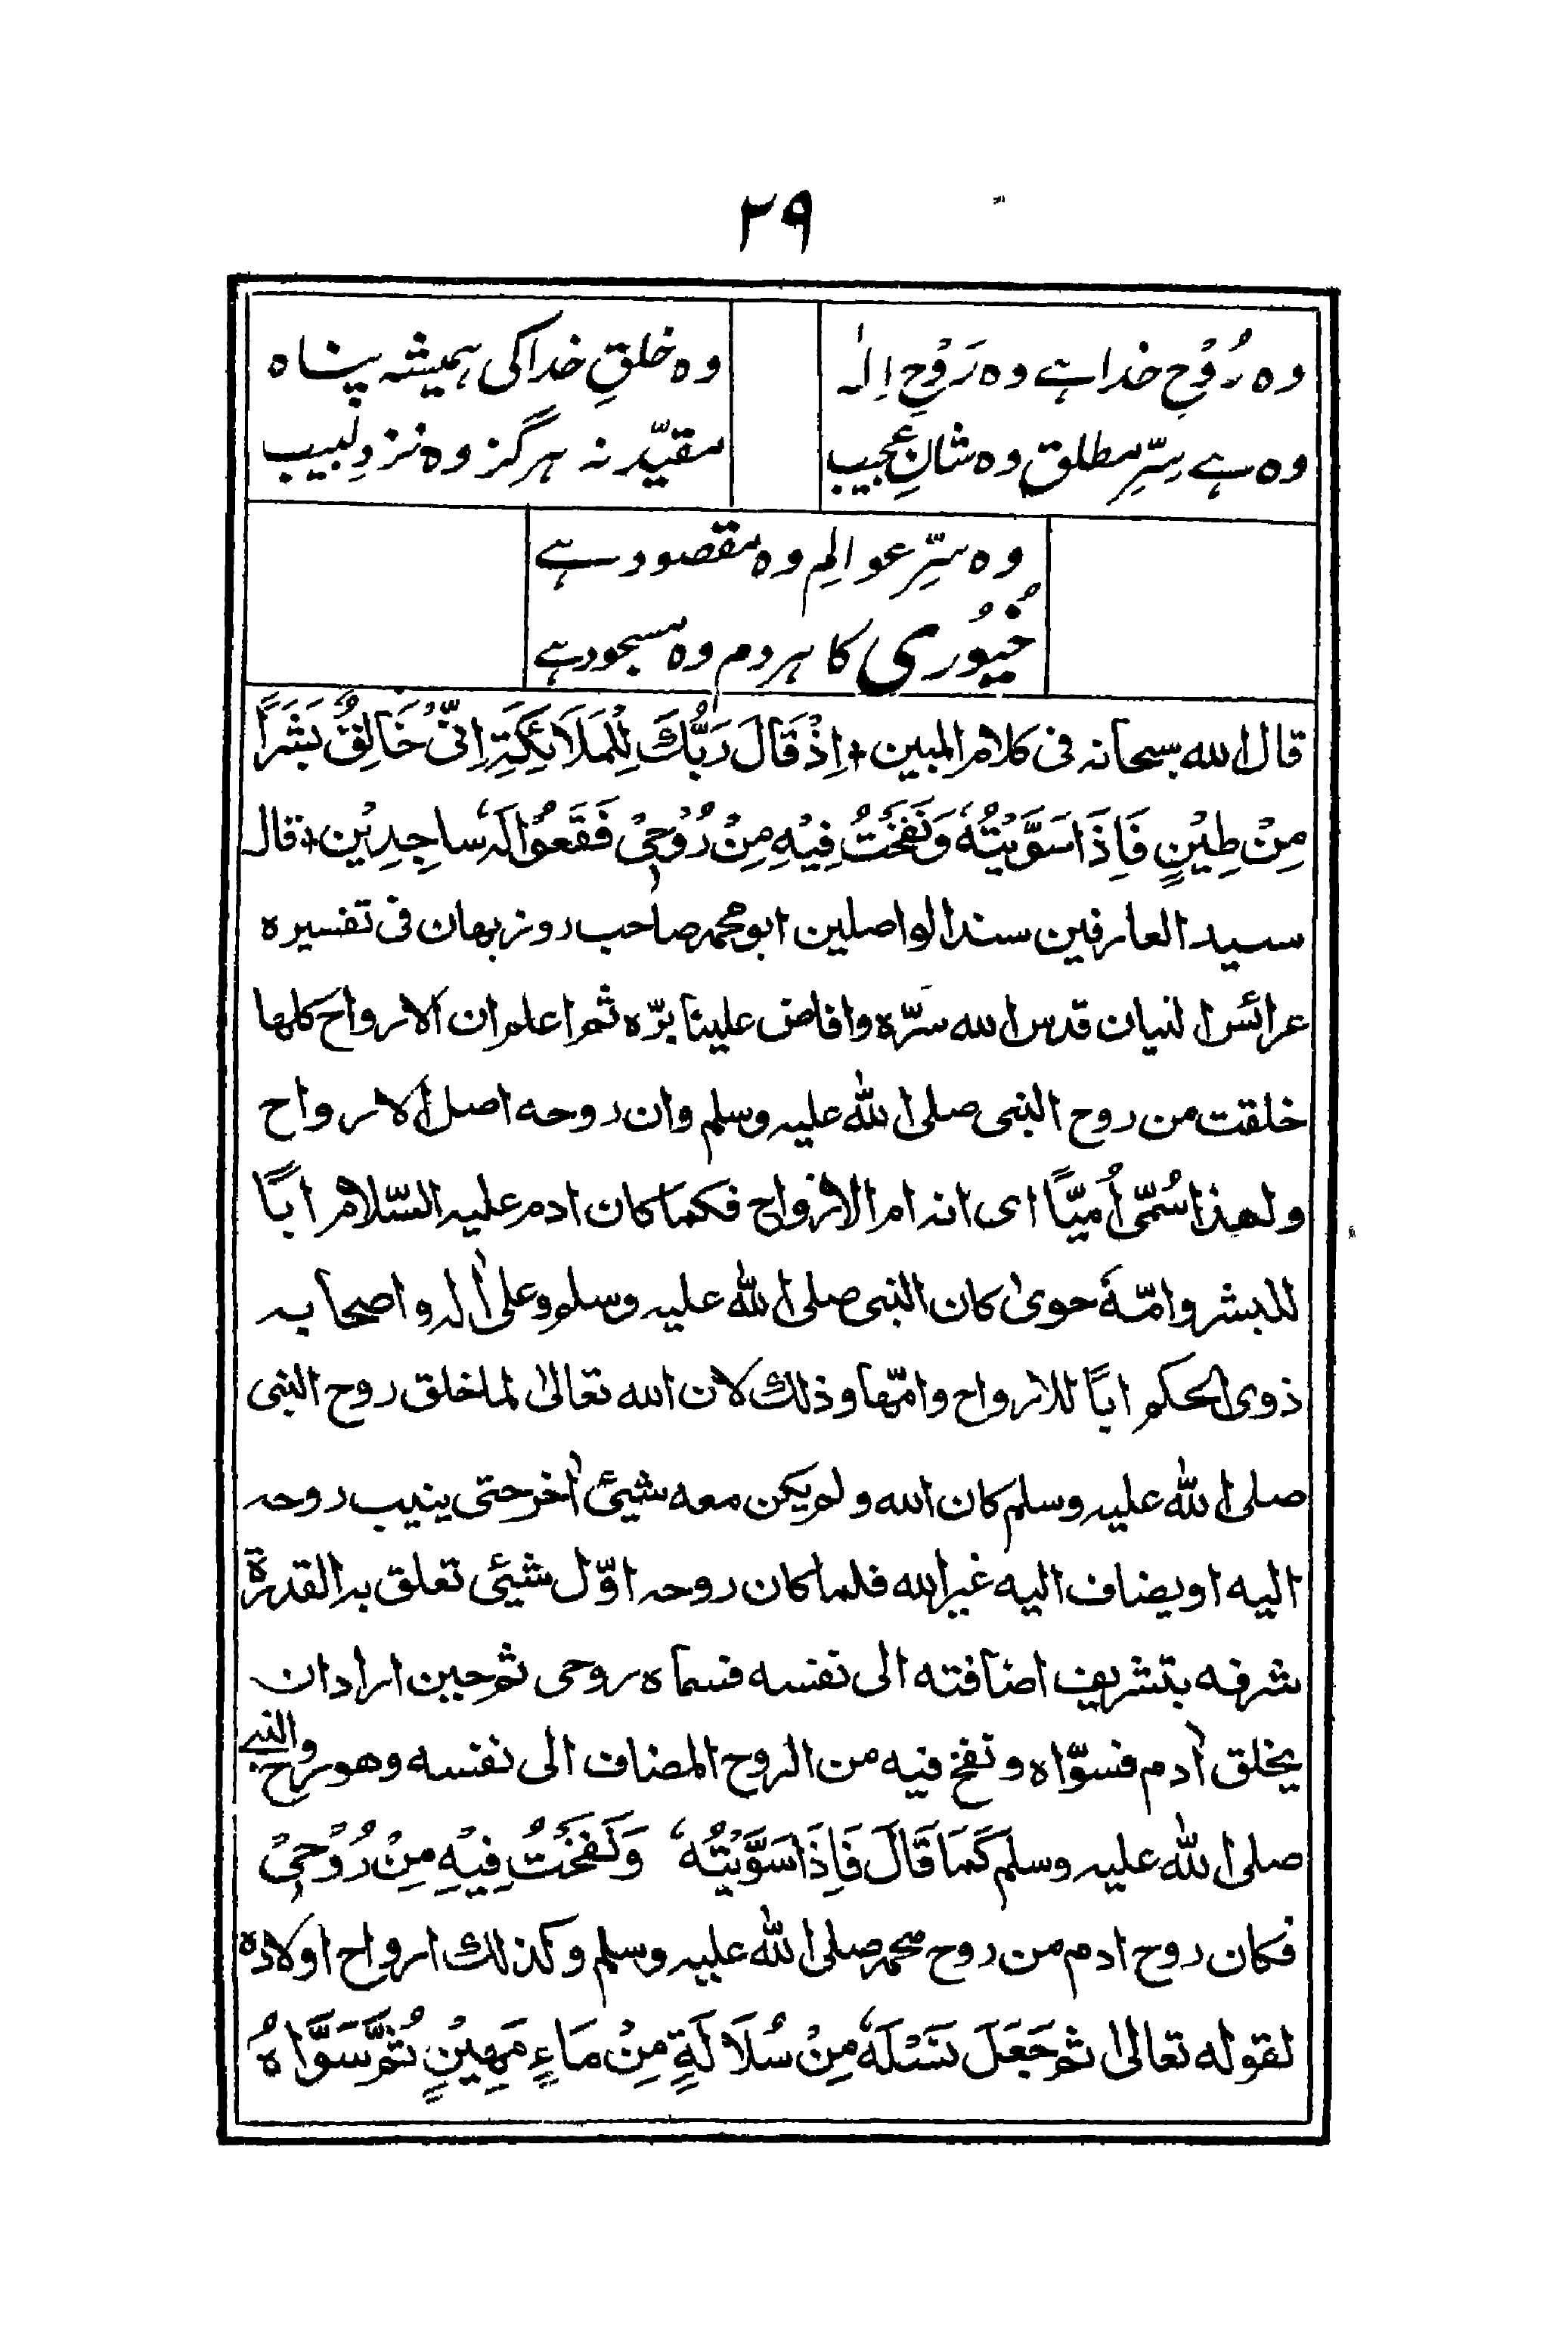 ۲۹
وہ رُوْحِ خدا ہے وہ رَوْحِ اِلٰہ وہ خلقِ خدا کی ہمیشہ پناہ
وہ ہے سِرِّ مطلق وہ شانِ عجیب مقیّد نہ ہرگز وہ نزدِ لبیب
وہ سِرِّ عوالِم وہ مقصود ہے
خُیُوْرِی کا ہر دم وہ مسجود ہے
قال الله سبحانه فی کلام المبین + اِذْ قَالَ رَبُّكَ لِلْمَلَائِكَةِ اِنِّیْ خَالِقٌ بَشَرًا
مِنْ طِیْنٍ فَاِذَا سَوَّیْتُهٗ وَنَفَخْتُ فِیْهِ مِنْ رُوْحِیْ فَقَعُوْا لَهٗ ساجِدِیْن + قال
سید العارفین سند الواصلین ابو محمد صاحب روزبهان فی تفسیرہ
عرائس البیان قدس الله سرّہ وافاض علینا برّہ ثم اعلم ان الارواح کلها
خلقت من روح النبی صلی اللّٰه علیه وسلم وان روحه اصل الارواح
ولهذا سُمّی اُمیًّا ای انه ام الارواح فکما کان ادم علیه السّلام ابًا
للبشر وامّةً حوی کان النبی صلی اللّٰه علیه وسلم وعلیٰ اٰله واصحابه
ذوی الحکم ابًا للارواح وامّها وذلك لان الله تعالیٰ لما خلق روح النبی
صلی اللّٰه علیه وسلم کان الله ولم یکن معه شیئ اٰخر حتی ینیب روحه
الیه او یضاف الیه غیر الله فلما کان روحه اوّل شیئی تعلق به القدرۃ
شرفه بتشریف اضافته الی نفسه فسماہ روحی ثم حین اراد ان
یخلق اٰدم فسوّاہ ونفخ فیه من الروح المضاف الی نفسه وهو روح النبی
صلی اللّٰه علیه وسلم کَمَا قَالَ فَاِذَا سَوَّیْتُهٗ وَنَفَخْتُ فِیْهِ مِنْ رُوْحِیْ
فکان روح ادم من روح محمد صلی اللّٰه علیه وسلم وکذلك ارواح اولادہ
لقوله تعالیٰ ثم جَعَلَ نَسْلَهٗ مِنْ سُلَالَةٍ مِنْ مَاءٍ مَهِیْنٍ ثُمَّ سَوَّاہُ